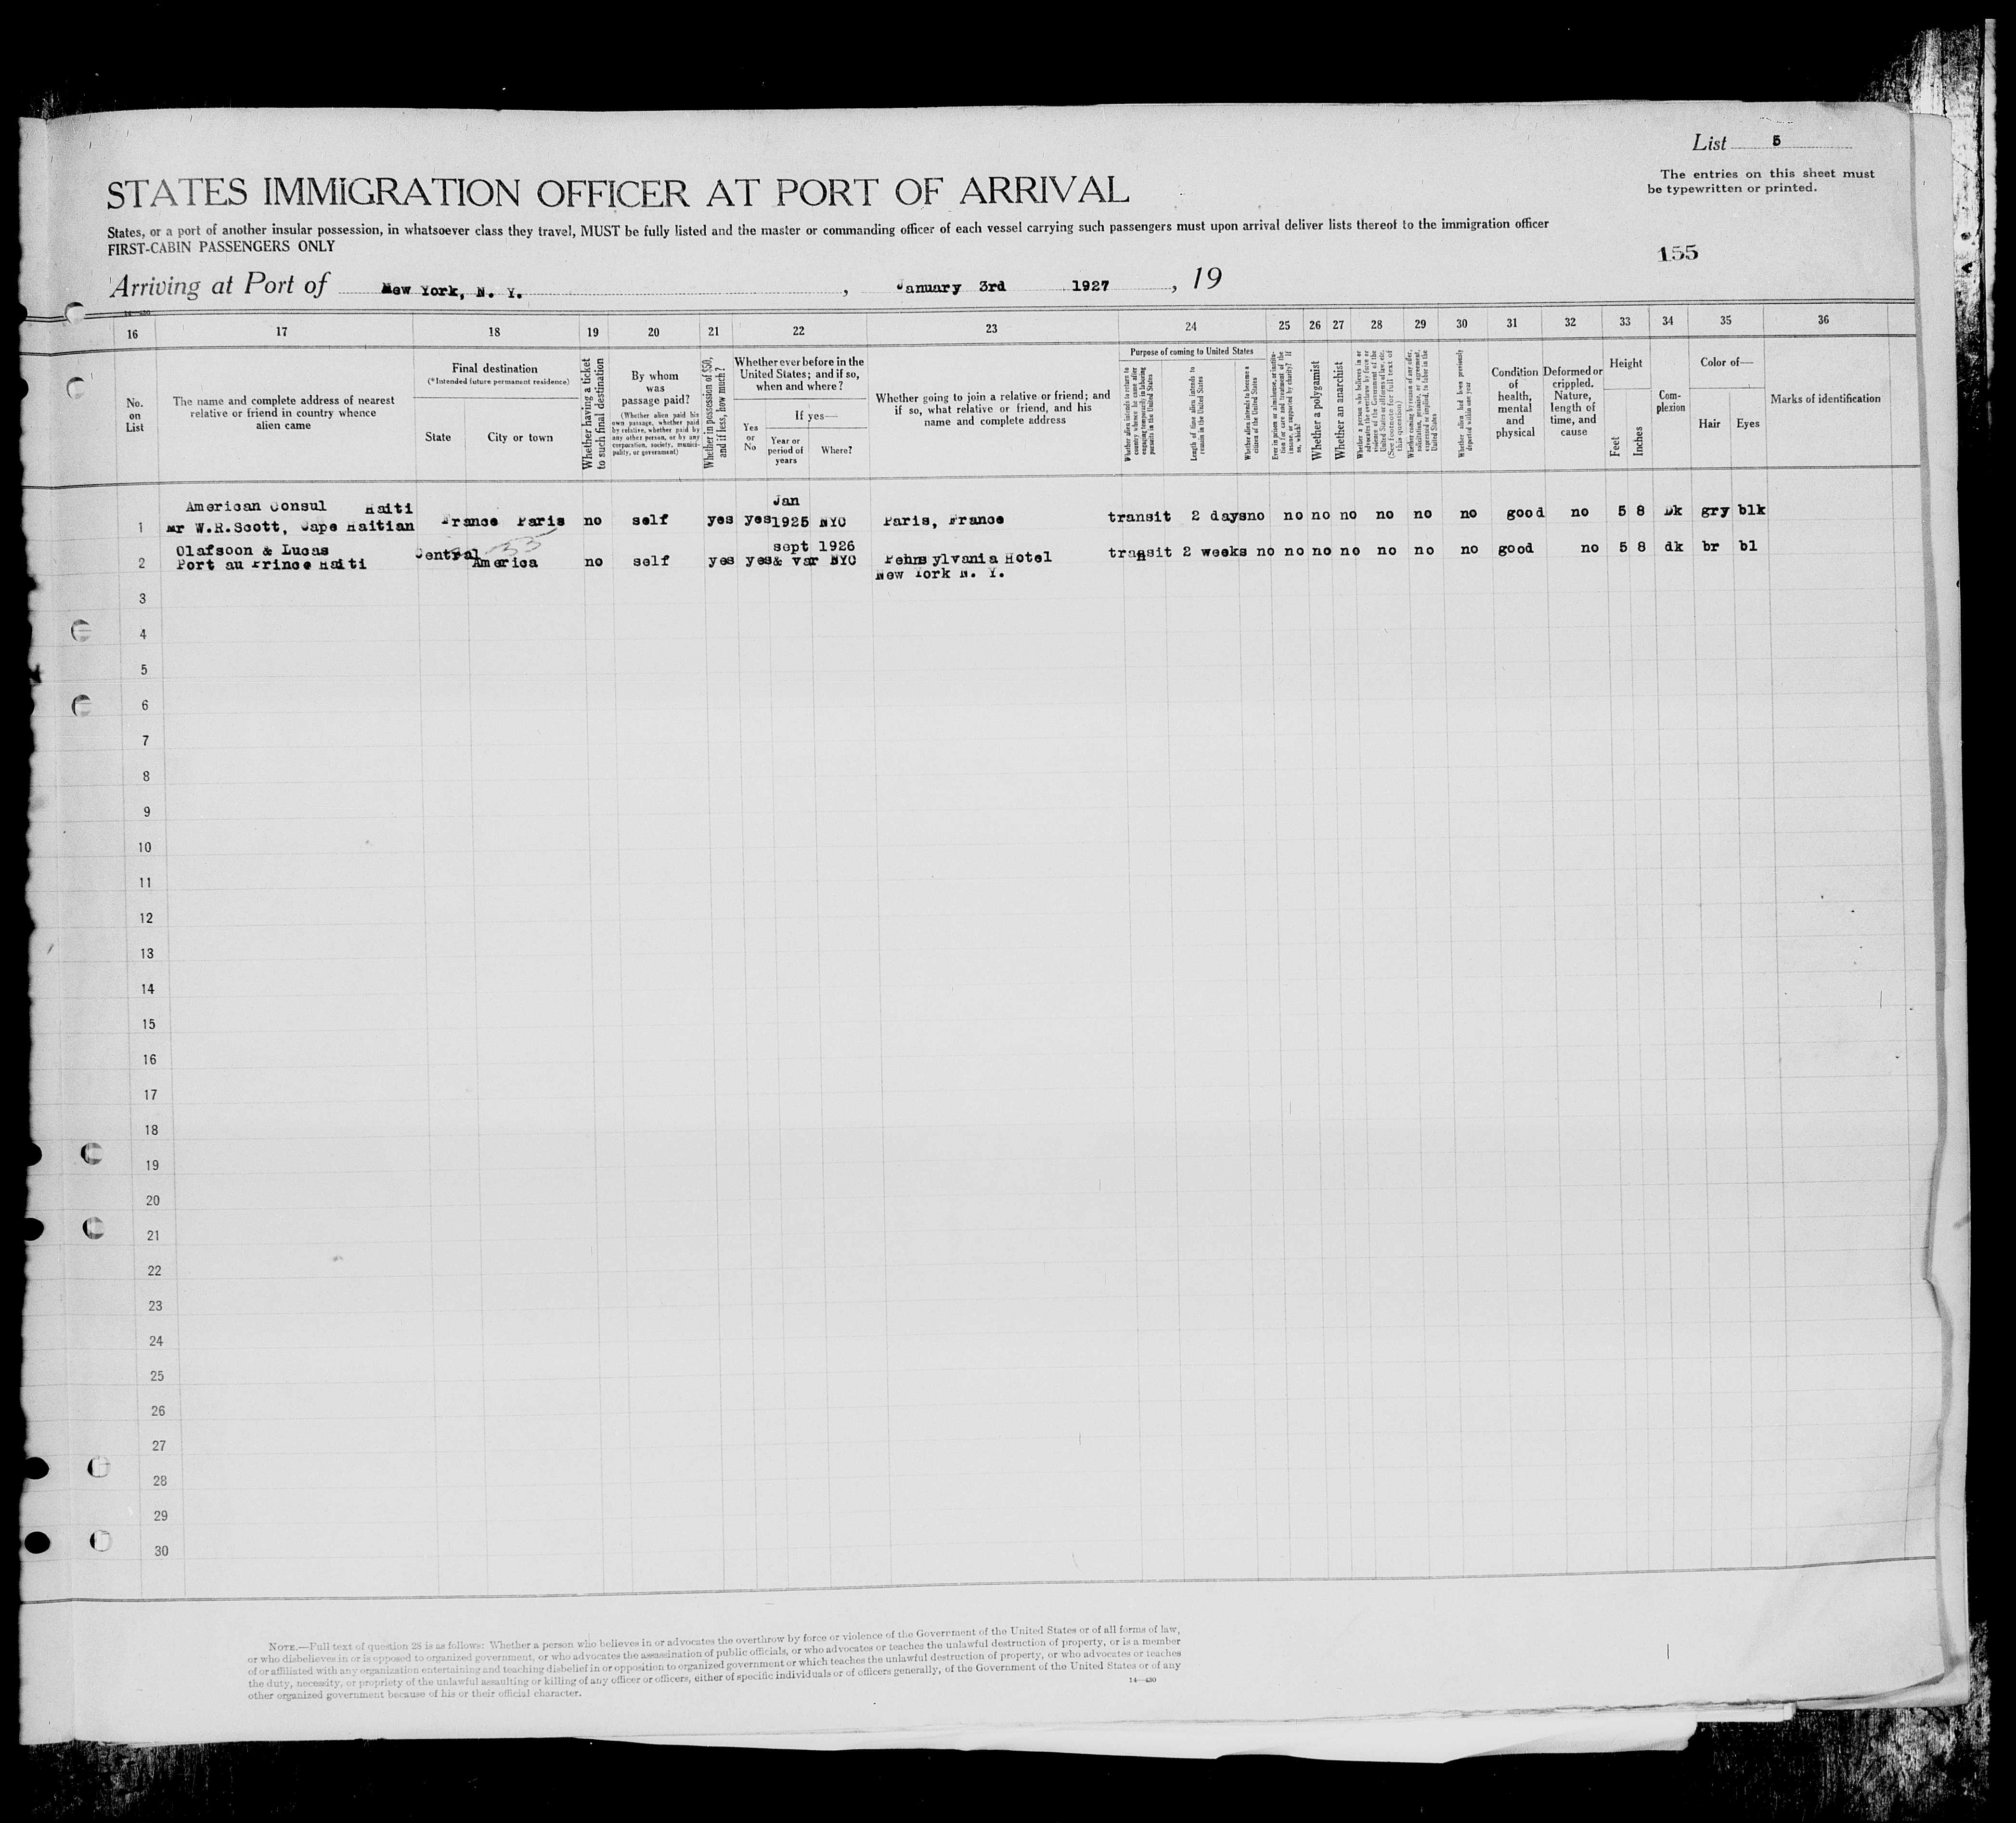 List 5
The entries on this sheet must
be typewritten or printed.
STATES IMMIGRATION OFFICER AT PORT OF ARRIVAL
States, or a port of another insular possession, in whatsoever class they travel, MUST be fully listed and the master or commanding officer of each vessel carrying such passengers must upon arrival deliver lists thereof to the immigration officer
FIRST-CABIN PASSENGERS ONLY
155
Arriving at Port of New York, N. Y. , January 3rd 1927 , 19
16 17 18 19 20 21 22 23 24 25 26 27 28 29 30 31 32 33 34 35 36
No.
on
List
The name and complete address of nearest
relative or friend in country whence
alien came
Final destination
(*Intended future permanent residence)
State
City or town
Whether having a ticket
to such final destination
By whom
was
passage paid?
(Whether alien paid his
own passage, whether paid
by relative, whether paid by
any other person, or by any
corporation, society, munici-
pality, or government)
Whether in possession of $50,
and if less, how much?
Whether ever before in the
United States; and if so,
when and where?
Yes
or
No
If yes—
Year or
period of
years
Where?
Whether going to join a relative or friend; and
if so, what relative or friend, and his
name and complete address
Purpose of coming to United States
Whether alien intends to return to
country whence he came after
engaging temporarily in laboring
pursuits in the United States
Length of time alien intends to
remain in the United States
Whether alien intends to become a
citizen of the United States
Ever in prison or almshouse, or institu-
tion for care and treatment of the
insane, or supported by charity? If
so, which?
Whether a polygamist
Whether an anarchist
Whether a person who believes in or
advocates the overthrow by force or
violence of the Government of the
United States or all forms of law, etc.
(See footnote for full text of
this question)
Whether coming by reason of any offer,
solicitation, promise, or agreement,
expressed or implied, to labor in the
United States
Whether alien had been previously
deported within one year
Condition
of
health,
mental
and
physical
Deformed or
crippled.
Nature,
length of
time, and
cause
Height
Feet
Inches
Com-
plexion
Color of—
Hair
Eyes
Marks of identification
American Consul Haiti Jan
1 Mr W.R.Scott, Cape Haitian France Paris no self yes yes 1925 NYC Paris, France transit 2 days no no no no no no no good no 5 8 Dk gry blk
Olafsoon & Lucas Central 33 sept 1926
2 Port au Prince Haiti America no self yes yes & var NYC Pennsylvania Hotel transit 2 weeks no no no no no no no good no 5 8 dk br bl
New York N. Y.
3
4
5
6
7
8
9
10
11
12
13
14
15
16
17
18
19
20
21
22
23
24
25
26
27
28
29
30
NOTE.—Full text of question 28 is as follows: Whether a person who believes in or advocates the overthrow by force or violence of the Government of the United States or of all forms of law,
or who disbelieves in or is opposed to organized government, or who advocates the assassination of public officials, or who advocates or teaches the unlawful destruction of property, or is a member
of or affiliated with any organization entertaining and teaching disbelief in or opposition to organized government or which teaches the unlawful destruction of property, or who advocates or teaches
the duty, necessity, or propriety of the unlawful assaulting or killing of any officer or officers, either of specific individuals or of officers generally, of the Government of the United States or of any
other organized government because of his or their official character.
14—430